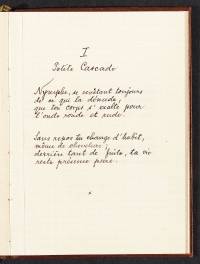 I
Petite Cascade
Nymphe, se revêtant toujours
de ce qui la dénude,
que ton corps s'exalte pour
l'onde ronde et rude.
Sans repos tu change d'habit,
même de chevelure;
derrière tant de fuite, ta vie
reste présence pure.